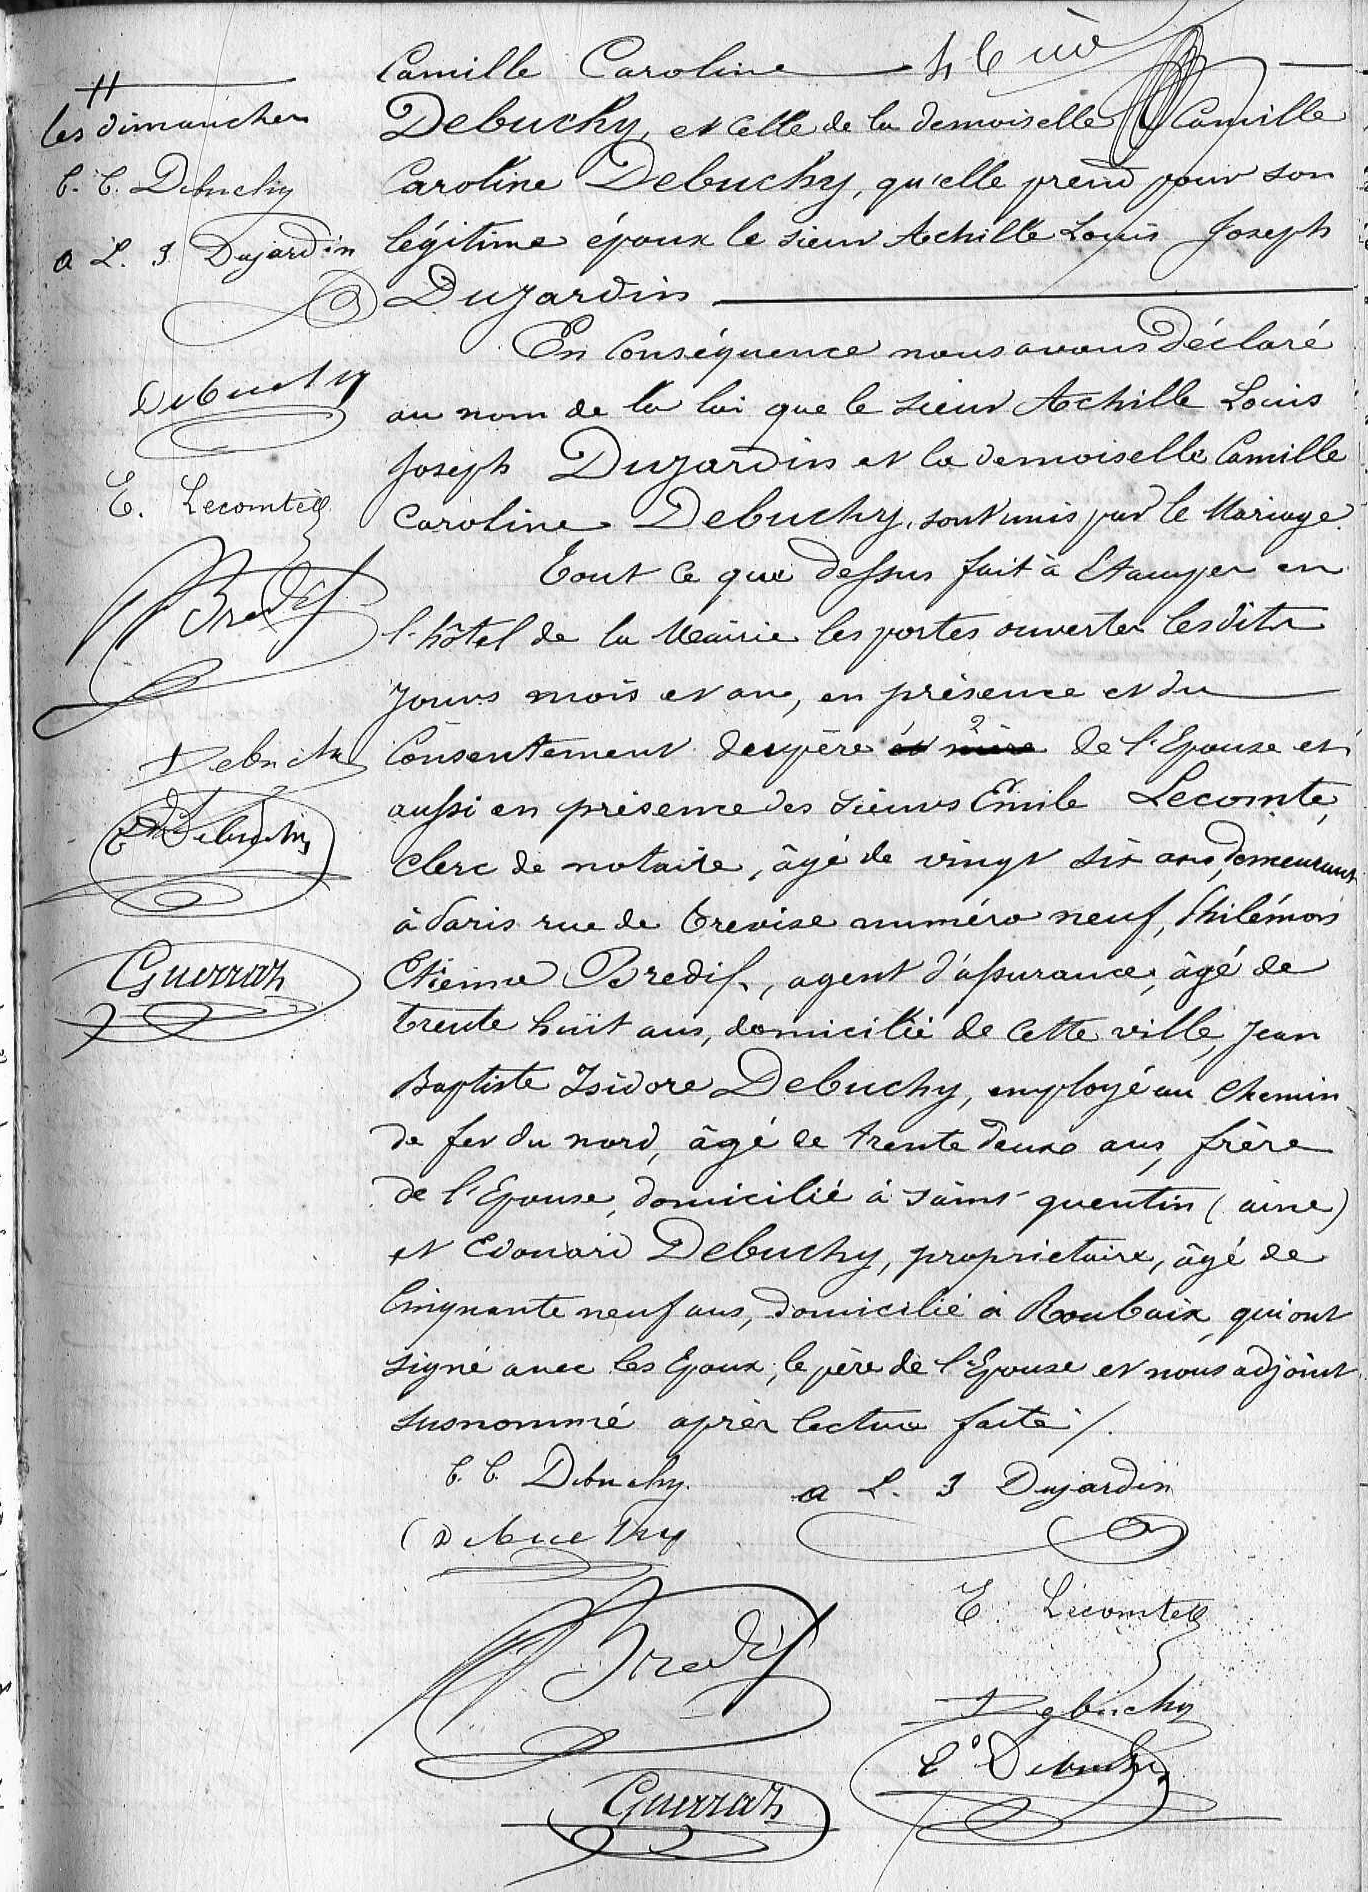 Camille Caroline
Debuchy, et celle de la demoiselle Camille
Caroline Debuchy, qu'elle prend pour son
légitime époux le sieur Achille Louis Joseph
Dujardin
En Conséquence nous avons déclaré
au nom de la loi que le sieur Achille Louis
Joseph Dujardin et la demoiselle Camille
Caroline Debuchy, sont unis par le Mariage.
Tout ce que dessus fait à Etampes en
l'hôtel de la Mairie les portes ouvertes lesdits
jours mois et an, en présence et du
Consentement du père et mère de l'Epouse et
aussi en présence des sieurs Emile Lecomte,
Clerc de notaire, âgé de vingt six ans, demeurant
à Paris rue de Trevise numéro neuf, Philémon
Etienne Bredif, agent d'assurance, âgé de
trente huit ans, domicilié de cette ville, Jean
Baptiste Isidore Debuchy, employé au Chemin
de fer du nord, âgé de trente deux ans, frère
de l'Epouse, domicilié à saint quentin (aine)
et Edouard Debuchy, proprietaire, âgé de
Cinquante neuf ans, domicilié à Roubaix, qui ont
signé avec les Epoux, le père de l'Epouse et nous adjoint
susnommé après lecture faite /.
C. C. Debuchy
A L. J Dujardin
Debuchy
E. Lecomte
Bredif
Debuchy
Ed Debuchy
Guerraz
les dimanches
C. C. Debuchy
A L. J Dujardin
Debuchy
E. Lecomte
Bredif
Debuchy
Ed Debuchy
Guerraz